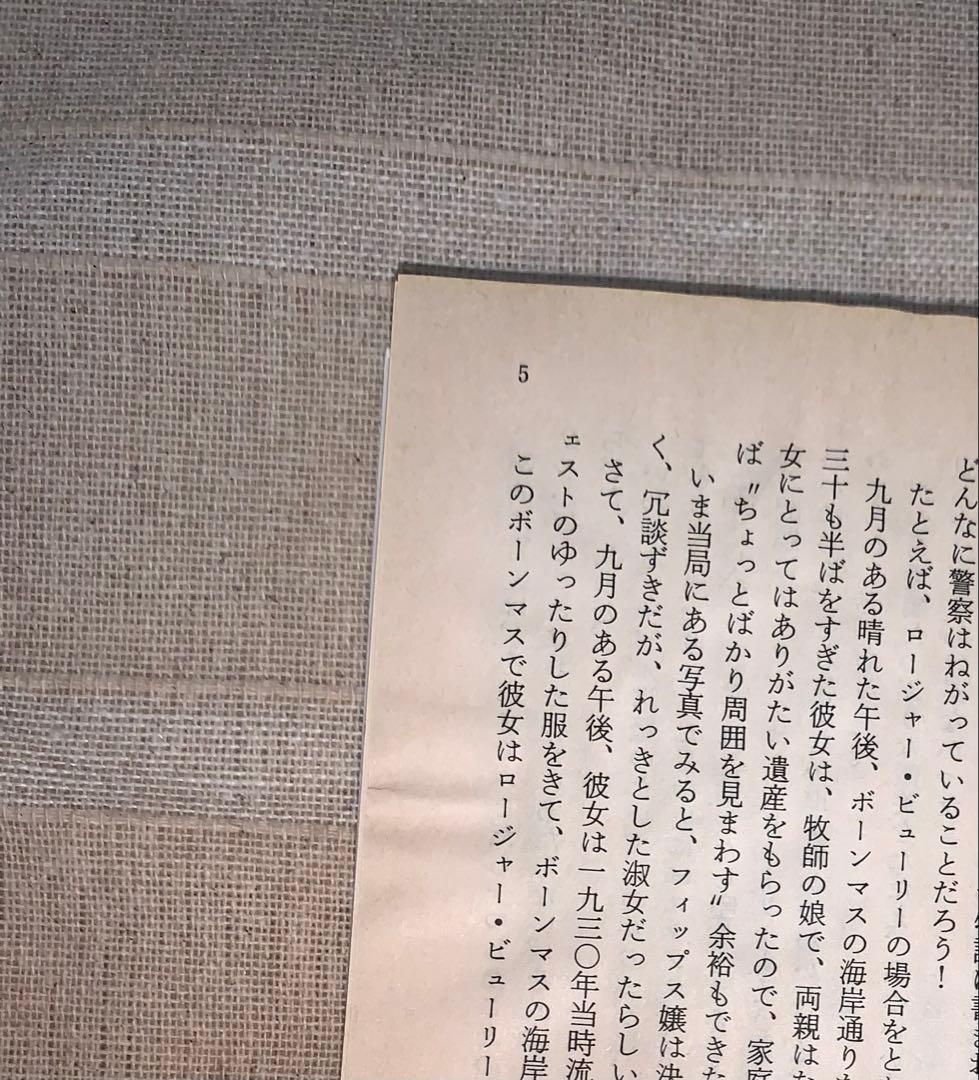 どんなに警察はねがっていることだろう！
たとえば、ロージャー・ビューリーの場合をと
九月のある晴れた午後、ボーンマスの海岸通り
三十も半ばをすぎた彼女は、牧師の娘で、両親は
女にとってはありがたい遺産をもらったので、家庭
ば〝ちょっとばかり周囲を見まわす〟余裕もできた
いま当局にある写真でみると、フィップス嬢は決
く、冗談ずきだが、れっきとした淑女だったらしい
さて、九月のある午後、彼女は一九三〇年当時流
ェストのゆったりした服をきて、ボーンマスの海岸
このボーンマスで彼女はロージャー・ビューリー
5